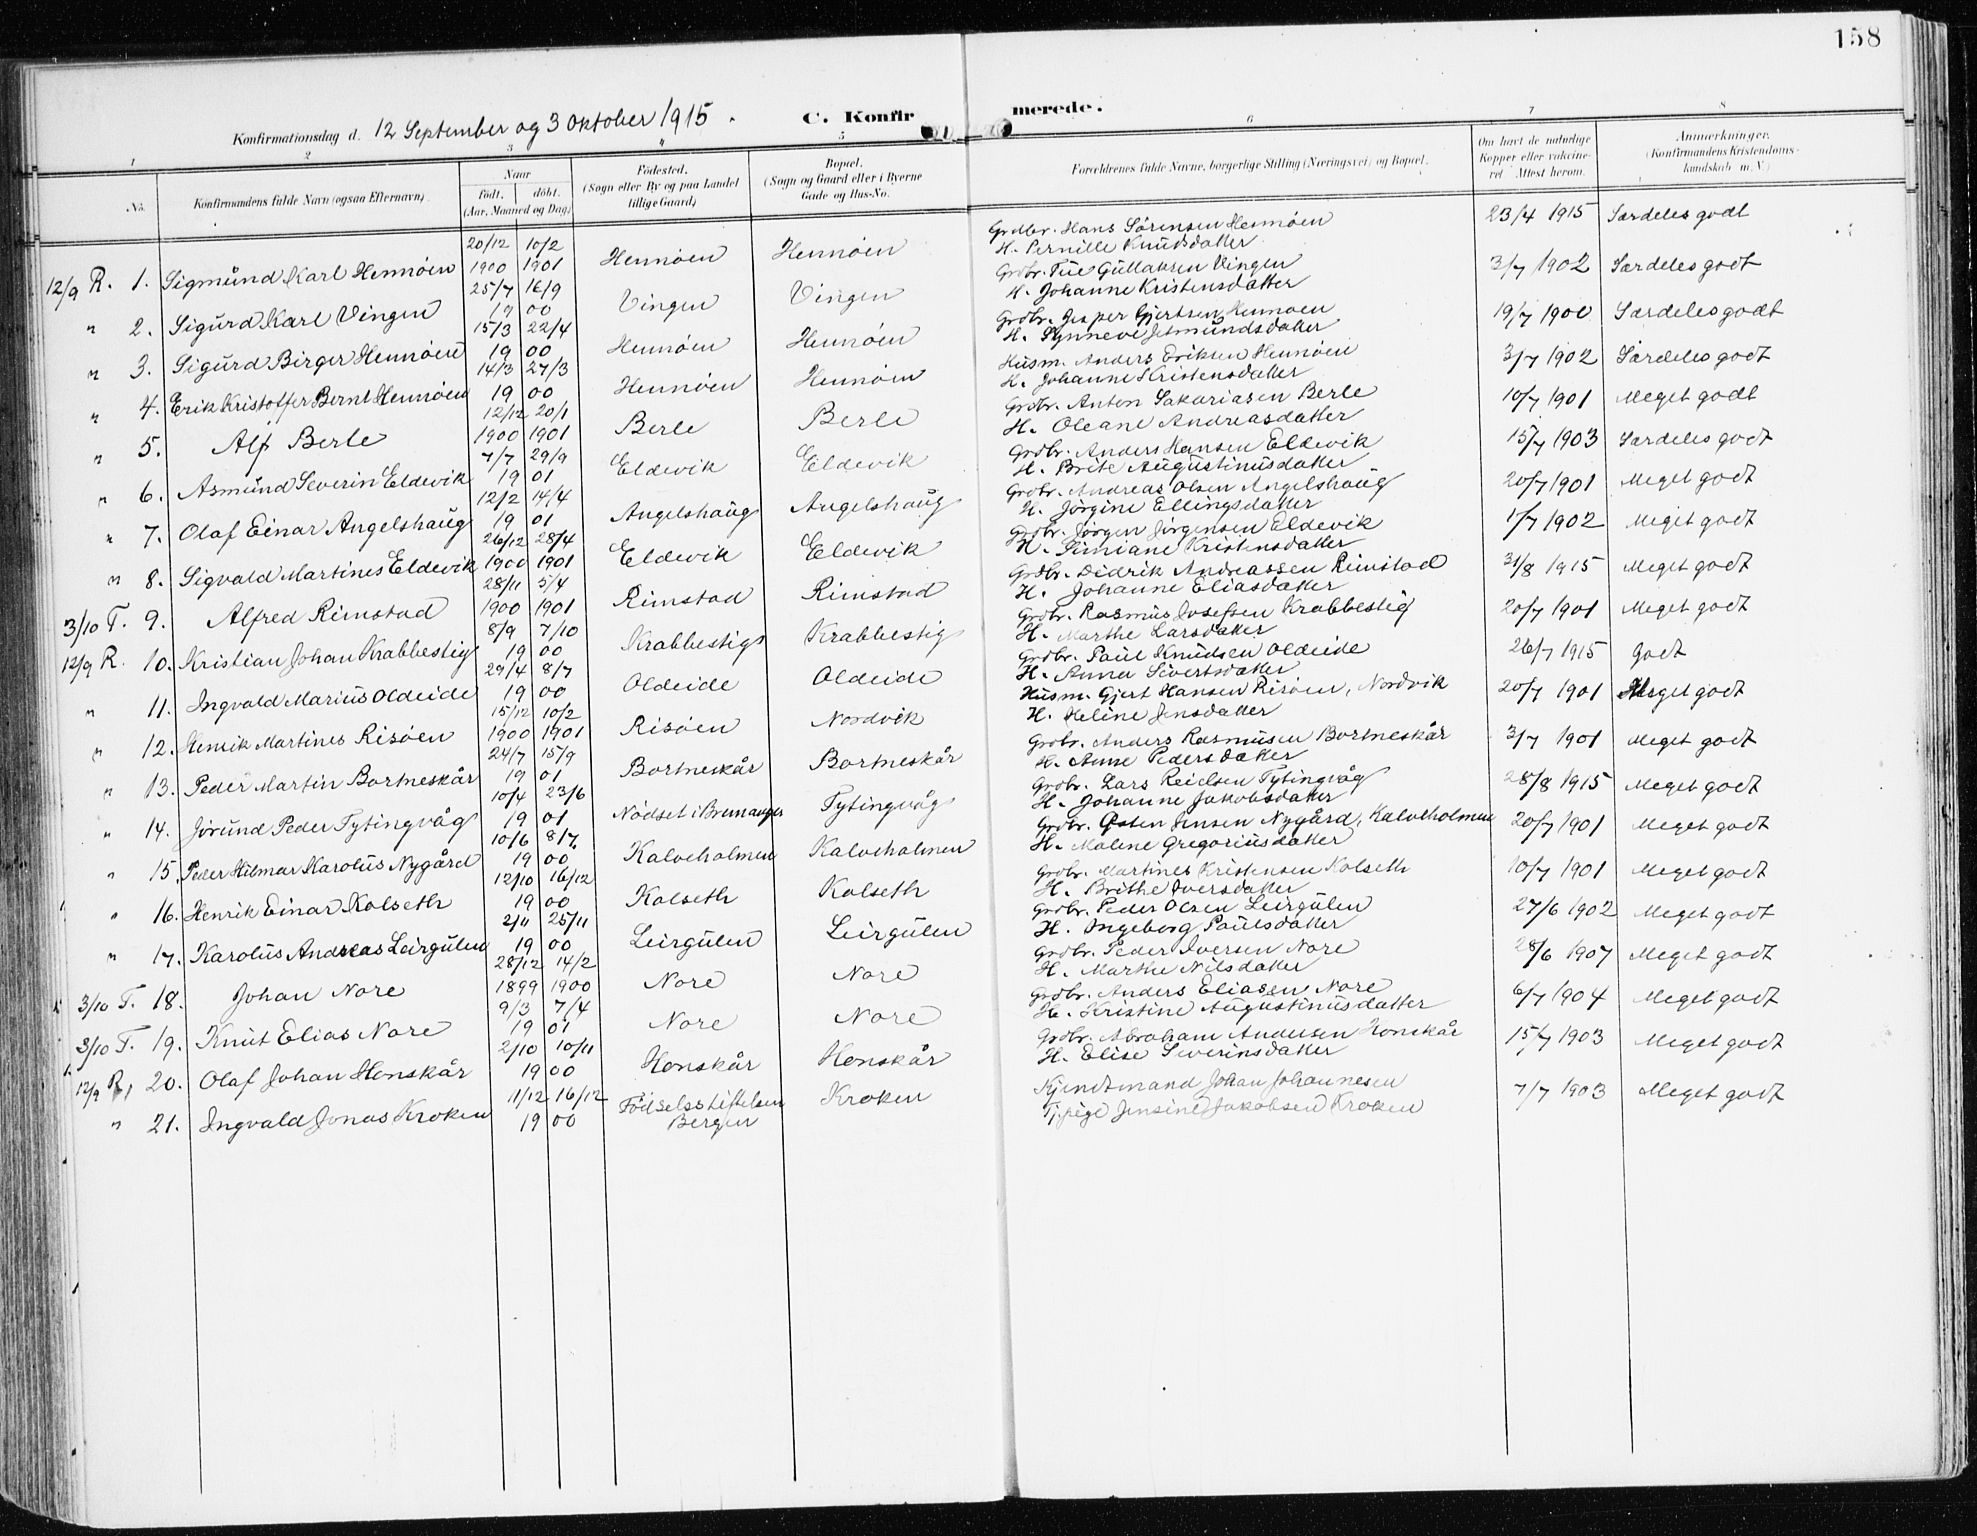 158
Konfirmationsdag d. 12 September og 3 Oktober 1915. C. Konfirmerede.
1 2 3 4 5 6 7 8
No. Konfirmandens fulde Navn (ogsaa Efternavn). Naar født, døbt. (Aar, Maaned og Dag) Födested. (Sogn eller By og paa Landet tillige Gaard) Bopæl. (Sogn og Gaard eller i Byerne Gade og Hus-No. Forældrenes fulde Navne, borgerlige Stilling (Næringsvei) og Bopæl. Om havt de naturlige Kopper eller vakcineret. Attest herom. Anmærkninger. (Konfirmandens Kristendomskundskab m. V.)
12/9 R. 1. Sigmund Karl Hennöen 20/12 1900 10/2 1901 Hennöen Hennöen Grdbr. Hans Sörensen Hennöen 23/4 1915 Særdeles godt
H. Pernille Knudsdatter
" 2. Sigurd Karl Vingen 25/7 1900 16/9 Vingen Vingen Grdbr. Tue Gullaksen Vingen 3/7 1902 Særdeles godt
H. Johanne Kristensdatter
" 3. Sigurd Birger Hennöen 15/3 1900 22/4 Hennöen Hennöen Grdbr. Jesper Gjertsen Hennöen 19/7 1900 Særdeles godt
H. Synneve Jetmundsdatter
" 4. Erik Kristoffer Bernt Hennöen 14/3 1900 27/3 Hennöen Hennöen Husm. Anders Eriksen Hennöen 3/7 1902 Særdeles godt
H. Johanne Kristensdatter
" 5. Alf Berle 12/12 1900 20/1 1901 Berle Berle Grdbr. Anton Sakariasen Berle 10/7 1901 Meget godt
H. Oleane Andreasdatter
" 6. Asmund Severin Eldevik 7/7 1901 29/9 Eldevik Eldevik Grdbr. Anders Hansen Eldevik 15/7 1903 Særdeles godt
H. Brite Augustinusdatter
" 7. Olaf Einar Angelshaug 12/2 1901 14/4 Angelshaug Angelshaug Grdbr. Andreas Olsen Angelshaug 20/7 1901 Meget godt
H. Jörgine Ellingsdatter
" 8. Sigvald Martines Eldevik 26/12 1900 28/4 1901 Eldevik Eldevik Grdbr. Jörgen Jörgensen Eldevik 1/7 1902 Meget godt
H. Simiane Kristensdatter
3/10 T. 9. Alfred Rimstad 28/11 1900 5/4 1901 Rimstad Rimstad Grdbr. Didrik Andreassen Rimstad 31/8 1915 Meget godt
H. Johanne Eliasdatter
12/9 R. 10. Kristian Johan Krabbestig 8/9 1900 7/10 Krabbestig Krabbestig Grdbr. Rasmus Josefsen Krabbestig 20/7 1901 Meget godt
H. Marthe Larsdatter
" 11. Ingvald Marius Oldeide 29/4 1900 8/7 Oldeide Oldeide Grdbr. Paul Knudsen Oldeide 26/7 1915 godt
H. Anna Sivertsdatter
" 12. Henrik Martines Risöen 15/12 1900 10/2 1901 Risöen Nordvik Husm. Gjert Hansen Risöen, Nordvik 20/7 1901 Meget godt
H. Heline Jensdatter
" 13. Peder Martin Bortneskår 24/7 1901 15/9 Bortneskår Bortneskår Grdbr. Anders Rasmusen Bortneskår 3/7 1901 Meget godt
H. Anne Pedersdatter
" 14. Jörund Peder Tytingvåg 10/4 1901 23/6 Nödset i Bremanger Tytingvåg Grdbr. Lars Reielsen Tytingvåg 28/8 1915 Meget godt
H. Johanne Jakobsdatter
" 15. Peder Hilmar Karolus Nygård 10/6 1900 8/7 Kalveholmen Kalveholmen Grdbr. Östen Jensen Nygård, Kalveholmen 20/7 1901 Meget godt
H. Malene Gregoriusdatter
" 16. Henrik Einar Kolseth 12/10 1900 16/12 Kolseth Kolseth Grdbr. Martines Kristensen Kolseth 10/7 1901 Meget godt
H. Brithe Iversdatter
" 17. Karolus Andreas Leirgulen 2/11 1900 25/11 Leirgulen Leirgulen Grdbr. Peder Olsen Leirgulen 27/6 1902 Meget godt
H. Ingeborg Paulsdatter
3/10 T. 18. Johan Nore 28/12 1899 14/2 1900 Nore Nore Grdbr. Peder Iversen Nore 28/6 1907 Meget godt
H. Marthe Nilsdatter
3/10 T. 19. Knut Elias Nore 9/3 1901 7/4 Nore Nore Grdbr. Anders Eliasen Nore 6/7 1904 Meget godt
H. Kristine Augustinusdatter
12/9 R. 20. Olaf Johan Honskår 2/10 1900 10/11 Honskår Honskår Grdbr. Abraham Andersen Honskår 15/7 1903 Meget godt
H. Elise Severinsdatter
" 21. Ingvald Jonas Kroken 11/12 1900 16/12 Födselsstiftelsen Bergen Kroken Kjendtmand Johan Johannesen 7/7 1903 Meget godt
Tj.pige Jensine Jakobsen Kroken